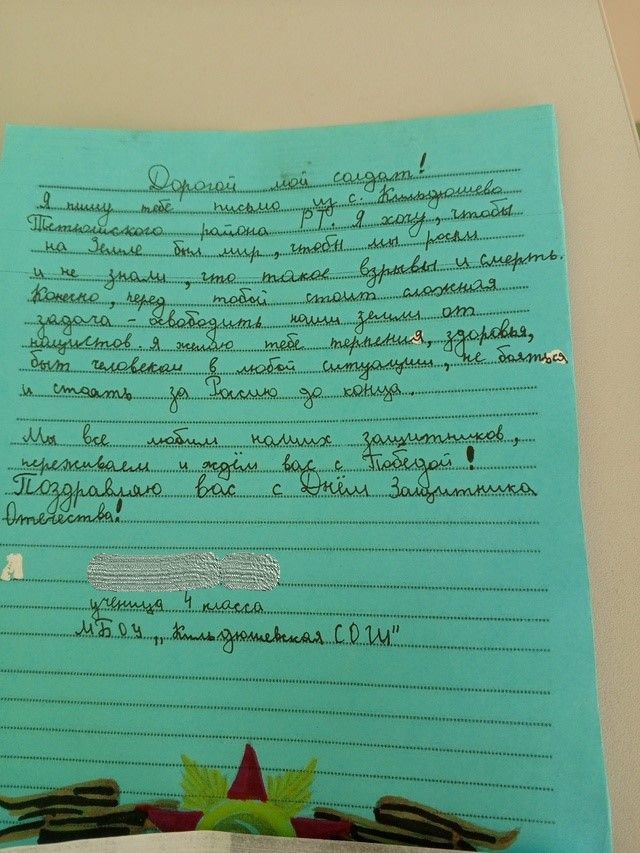 Дорогой мой солдат!
Я пишу тебе письмо из с. Кильдюшево
Тетюшского района РТ. Я хочу, чтобы
на Земле был мир, чтобы мы росли
и не знали, что такое взрывы и смерть.
Конечно, перед тобой стоит сложная
задача - освободить наши земли от
нацистов. Я желаю тебе терпения, здоровья,
быт человеком в любой ситуации, не бояться
и стоять за Россию до конца.
Мы все любим наших защитников,
переживаем и ждём вас с Победой!
Поздравляю вас с Днём Защитника
Отечества!
ученица 4 класса
МБОУ ,,Кильдюшевская СОШ"